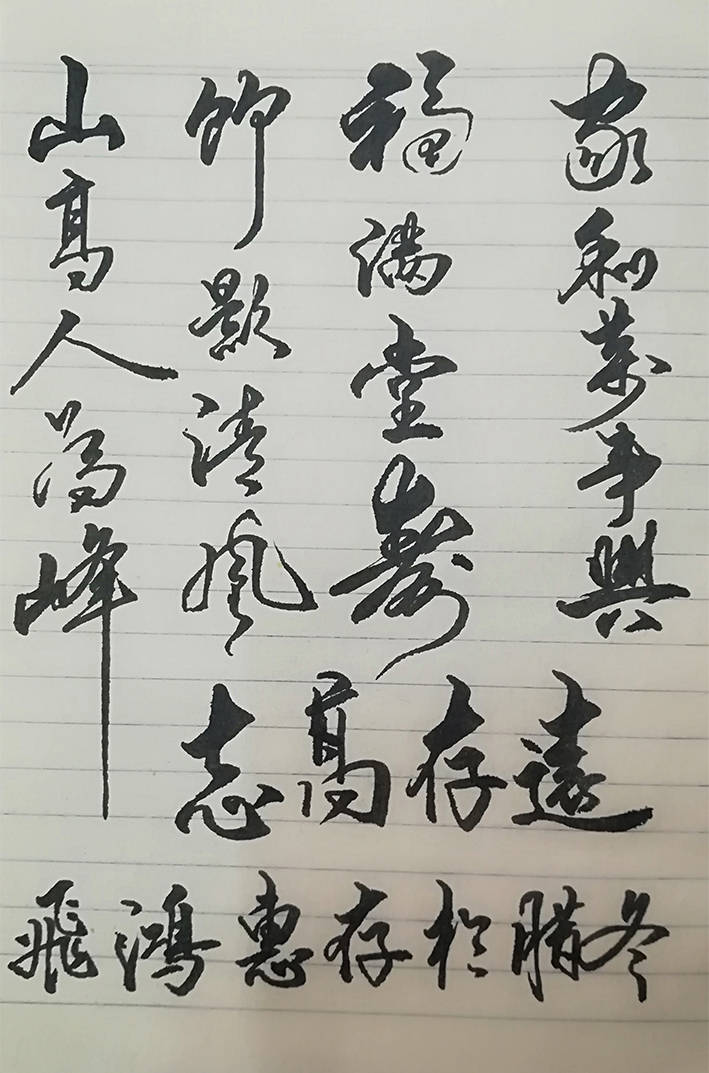 家和萬事興
福满堂壽
竹影清風
山高人為峰
志高存遠
飛鴻惠存於腊冬